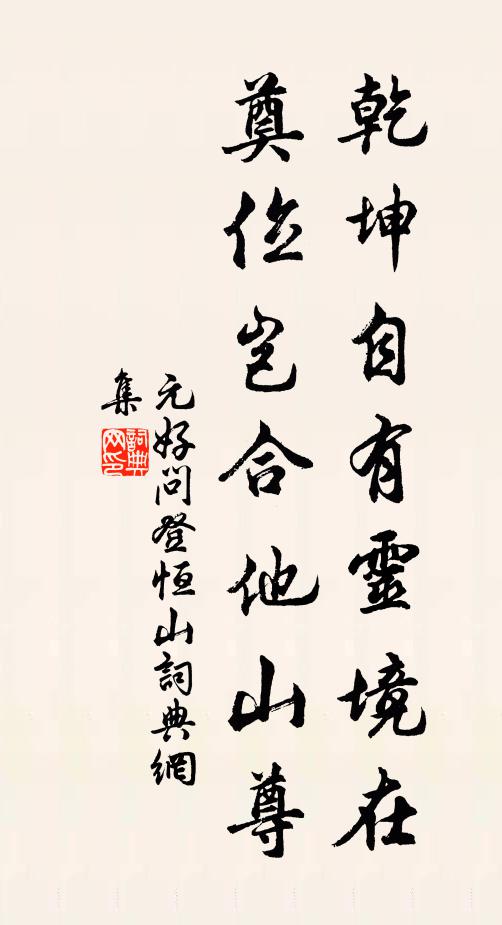 乾坤自有靈境在
奠位豈合他山尊
元好問登恒山詞典網
集
詞典
网印